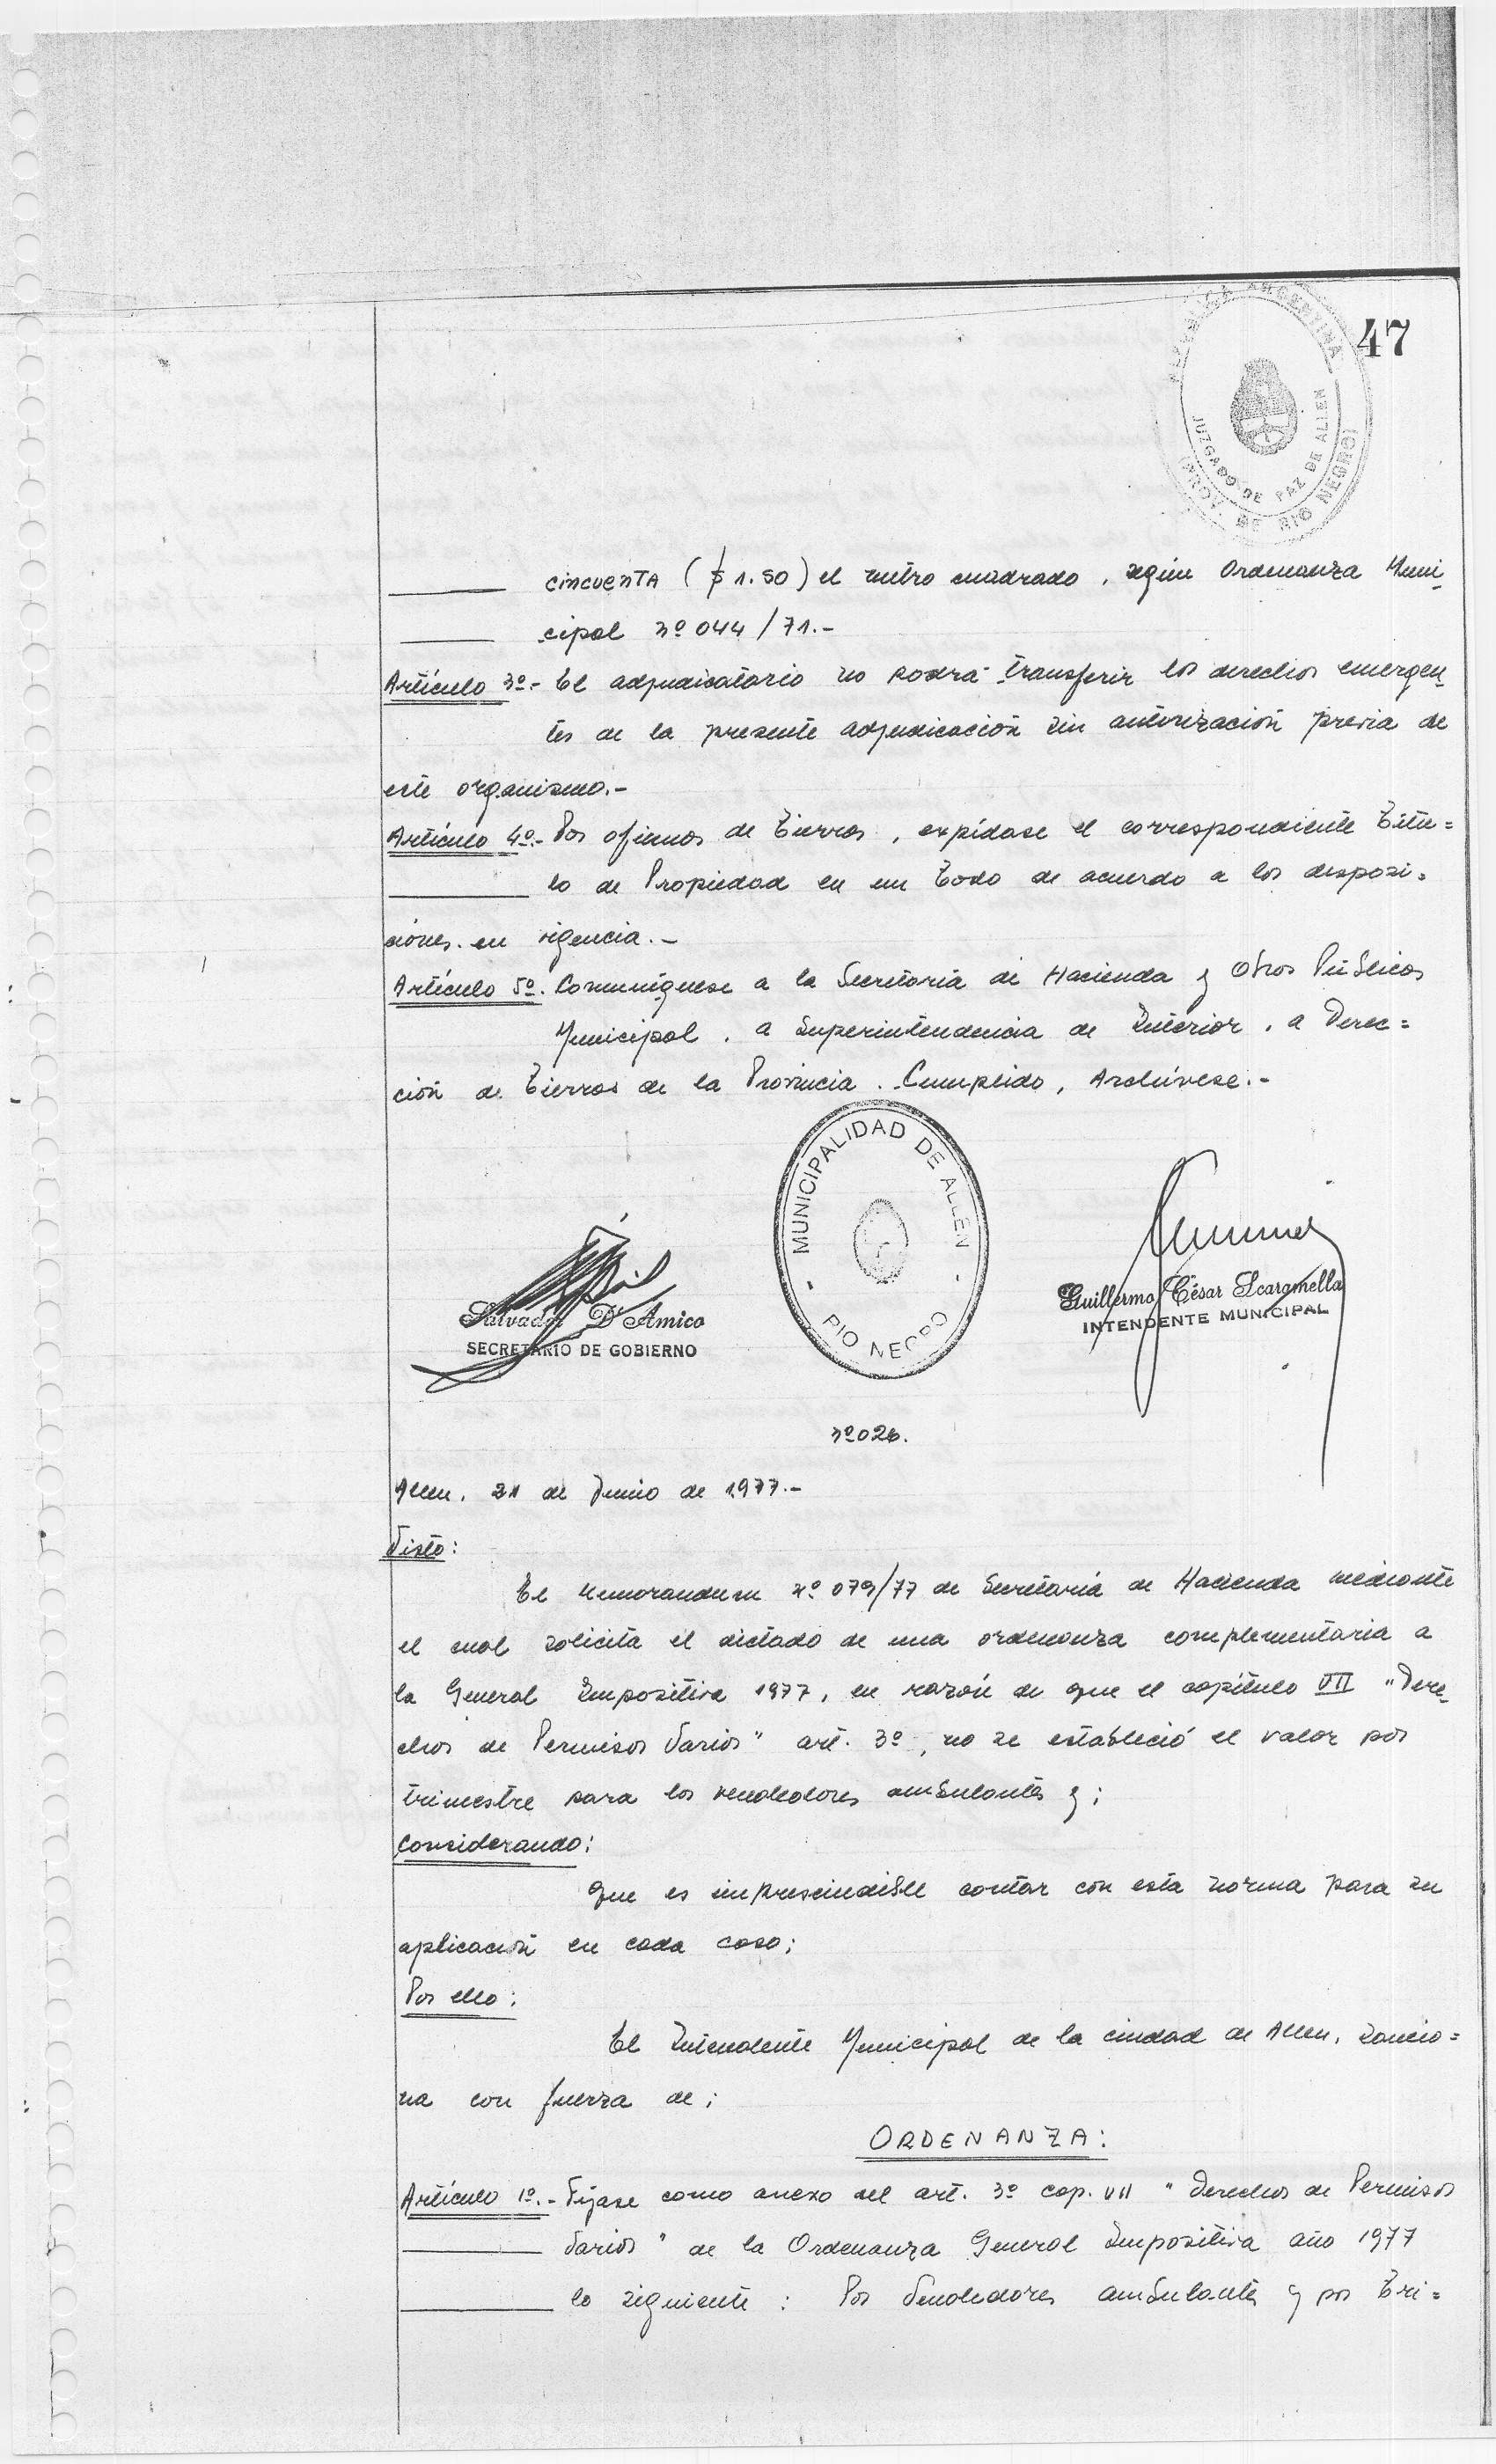 47
REPUBLICA ARGENTINA
JUZGADO DE PAZ DE ALLEN
(PROV. DE RIO NEGRO)
cincuenta ($ 1.50) el metro cuadrado, según Ordenanza Muni
cipal nº 044/71.-
Artículo 3º.- El adjudicatario no podrá transferir los derechos emergen
tes de la presente adjudicación sin autorización previa de
este organismo.-
Artículo 4º.- Por oficinas de Tierras, expídase el correspondiente Títu=
lo de Propiedad en un todo de acuerdo a las disposi=
ciones en vigencia.-
Artículo 5º. Comuníquese a la Secretaría de Hacienda y Obras Públicas
Municipal, a Superintendencia de Interior, a Direc=
ción de Tierras de la Provincia. Cumplido, Archívese.-
MUNICIPALIDAD DE ALLEN
- RIO NEGRO -
Salvador D'Amico
SECRETARIO DE GOBIERNO
Guillermo César Scaramella
INTENDENTE MUNICIPAL
nº 026.
Allen, 21 de Junio de 1977.-
Visto:
El Memorandum nº 079/77 de Secretaría de Hacienda mediante
el cual solicita el dictado de una ordenanza complementaria a
la General Impositiva 1977, en razón de que el capítulo VII "Dere
chos de Permisos Varios" art. 3º, no se estableció el valor por
trimestre para los vendedores ambulantes y;
Considerando:
Que es imprescindible contar con esta norma para su
aplicación en cada caso;
Por ello:
El Intendente Municipal de la ciudad de Allen, sancio=
na con fuerza de;
ORDENANZA:
Artículo 1º.- Fíjase como anexo del art. 3º cap. VII "Derechos de Permisos
Varios" de la Ordenanza General Impositiva año 1977
lo siguiente: Por Vendedores ambulantes y por tri=